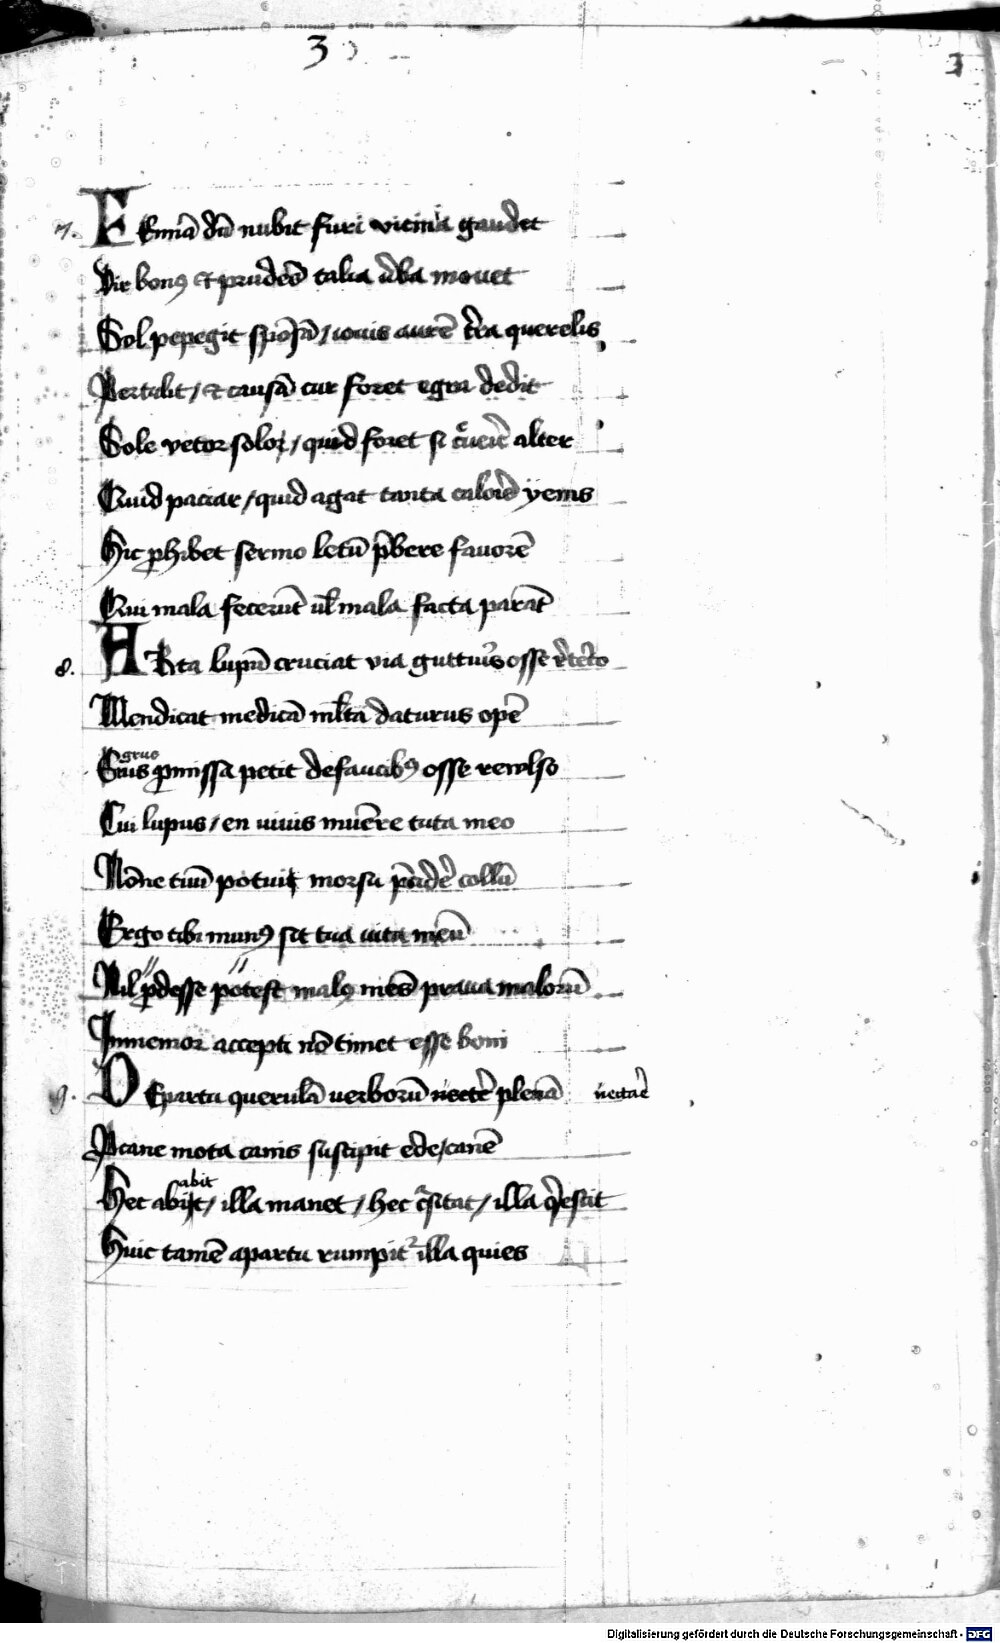 3
3
7. FEmīa dū nubit furi vicinia gaudet
Vir bonꝰ et prudēs talia v̄ba mouet
Sol pepegit spōsā / iouis aurē t̄ra querelis
Pertulit / et causā cur foret egra dedit
Sole vetor solo / quid foret si alter
Quid paciar / quid agat tanta calore yems
Hic ꝓhibet sermo letū p̄bere fauorē
Qui mala fecerūt vl̄ mala facta parāt
8. ARta lupū cruciat via gutturis osse
Mendicat medicā ml̄ta daturus opē
grus
Grus ꝓmissa petit de faucibꝰ osse reuulso
Cui lupus / en viuis munere tuta meo
Nōne tuū potuit morsu collū
Ergo tibi munꝰ sit tua vita meū
Nil ꝓdesse potest malꝰ mēs praua malorū
Inmemor accepti nō timet esse boni
9. DE partu querulā verborū plenā
Pcane mota canis suscipit ede / canē
abit
Hec abijt / illa manet / hec / illa
Huic tamē a partu rumpit illa quies
Digitalisierung gefördert durch die Deutsche Forschungsgemeinschaft - DFG